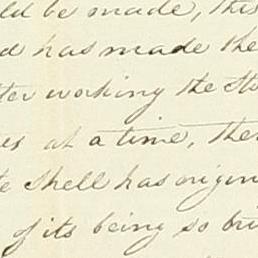 ld be made, this
d has made the
ter working the Sto
es at a time, the
te Shell has origin
of its being so bri